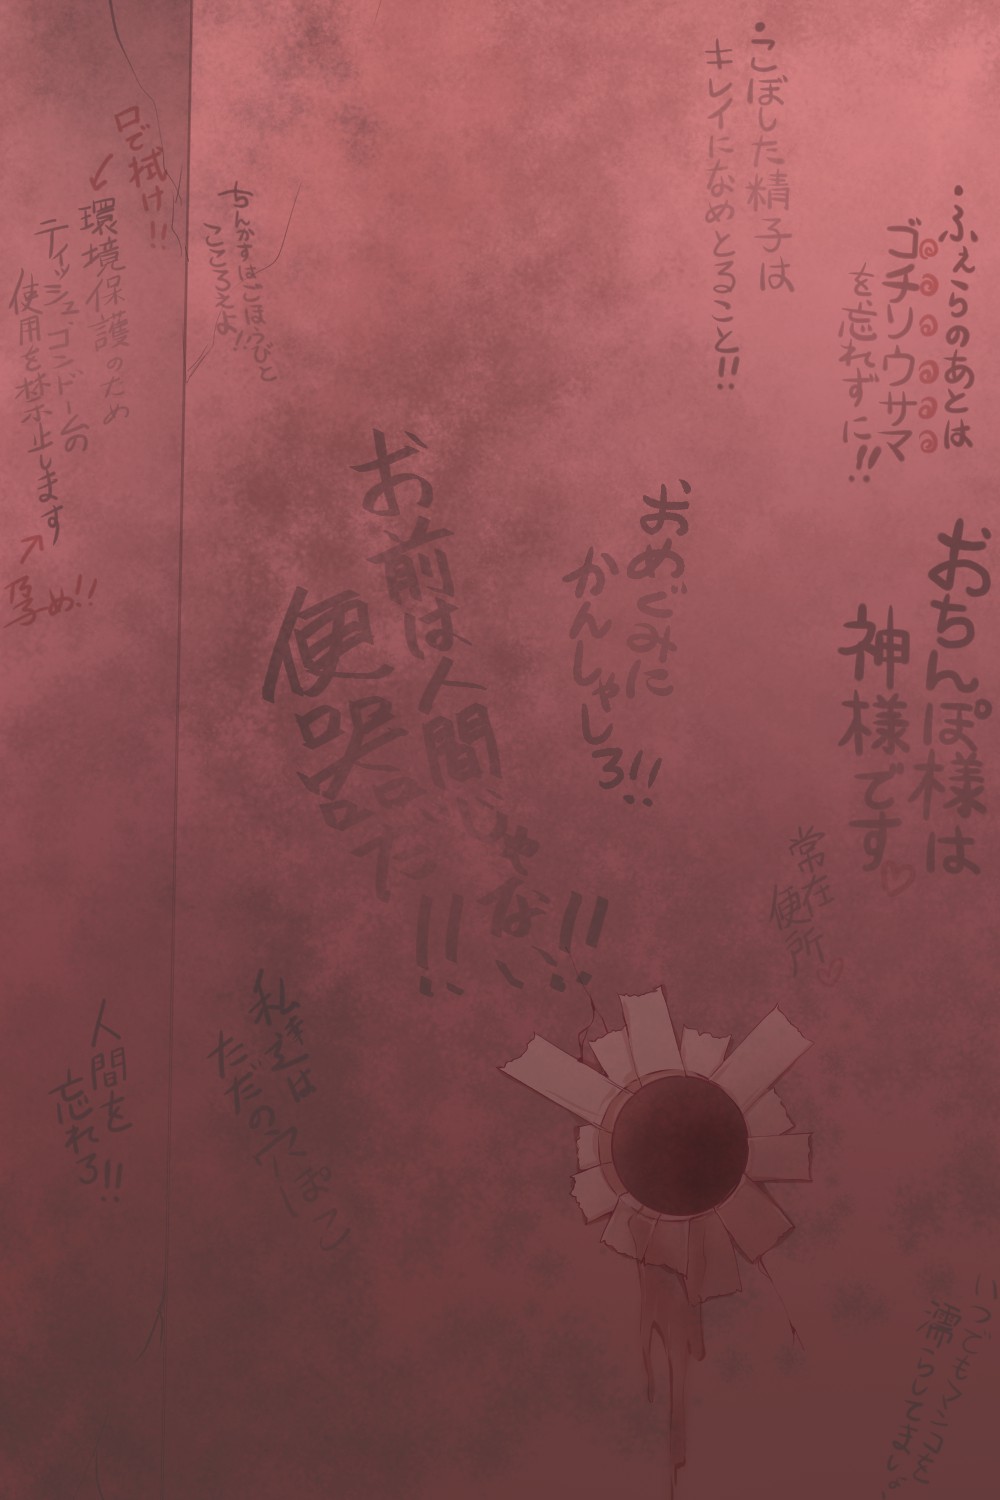 ・こぼした精子は
キレイになめとること!!
・ふぇらのあとは
ゴチソウサマ
を忘れずに!!
おちんぽ様は
神様です♡
おめぐみに
かんしゃしろ!!
お前は人間じゃない!!
便器だ!!
常在
便所♡
ちんかすはごほうびと
こころえよ!!
口で拭け!!
環境保護のため
ティッシュ、ゴンドームの
使用を禁止します
孕め!!
人間を
忘れろ!!
私達は
ただの
いつでもマンコを
濡らしてまし